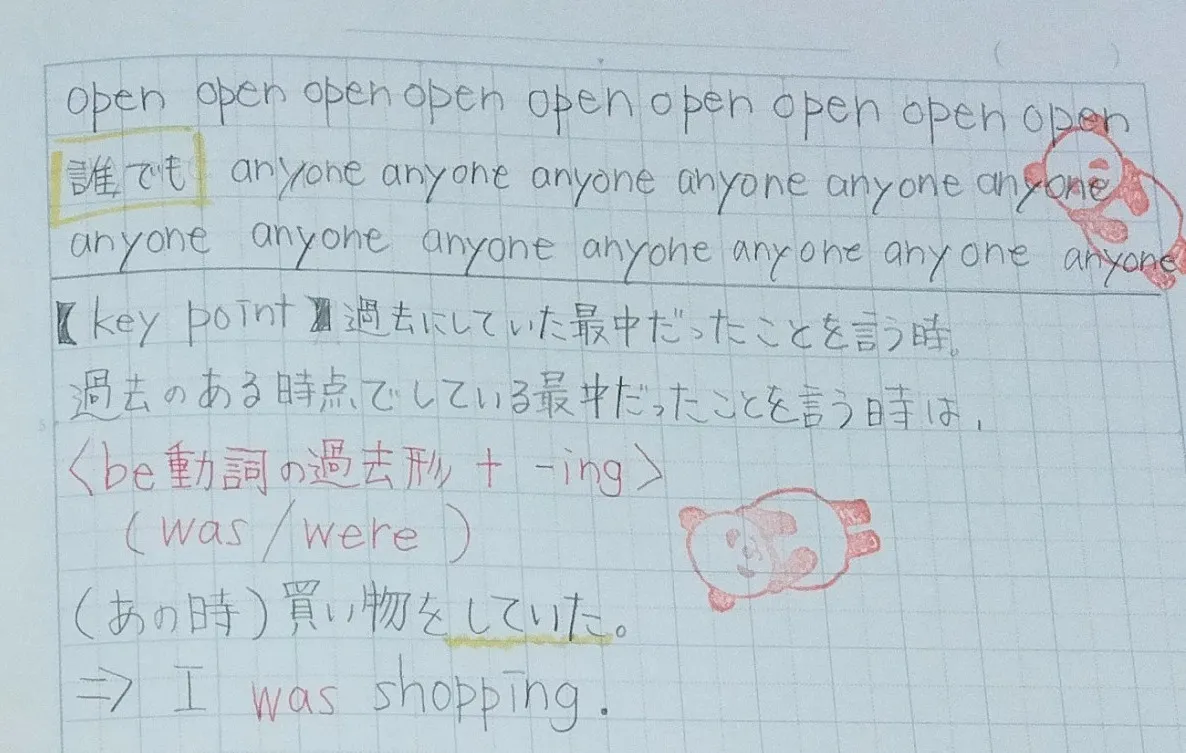 ( )
open open open open open open open open open
誰でも anyone anyone anyone anyone anyone anyone
anyone anyone anyone anyone anyone anyone anyone
【key point】過去にしていた最中だったことを言う時。
過去のある時点でしている最中だったことを言う時は,
〈be動詞の過去形 + -ing〉
(was/were)
(あの時)買い物をしていた。
⇒ I was shopping.